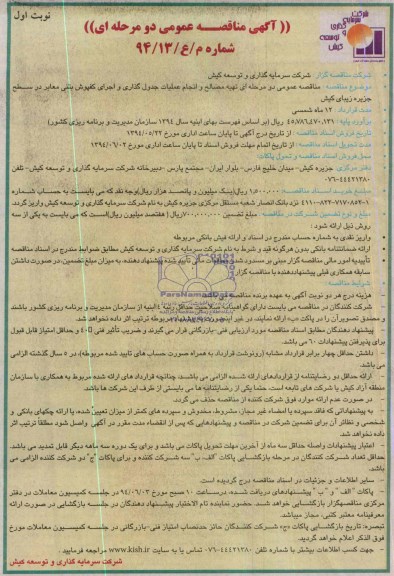 نوبت اول
شرکت سرمایه گذاری و توسعه کیش
(( آگهی مناقصه عمومی دو مرحله ای))
شماره م/ع/۹۴/۱۳
شرکت مناقصه گزار: شرکت سرمایه گذاری و توسعه کیش
موضوع مناقصه: مناقصه عمومی دو مرحله ای تهیه مصالح و انجام عملیات جدول گذاری و اجرای کفپوش بتنی معابر در سطح
جزیره زیبای کیش
مدت قرارداد: ۱۲ ماه شمسی
برآورد پایه: ۴۵,۷۸۶,۴۷۰,۱۳۱ ریال (بر اساس فهرست بهای ابنیه سال ۱۳۹۴ سازمان مدیریت و برنامه ریزی کشور)
تاریخ فروش اسناد مناقصه: از تاریخ درج آگهی تا پایان ساعت اداری مورخ ۱۳۹۴/۰۵/۲۲
مدت تحویل اسناد مناقصه: از تاریخ اتمام مهلت فروش اسناد تا پایان ساعت اداری مورخ ۱۳۹۴/۰۶/۰۲
محل فروش اسناد مناقصه و تحویل پاکات:
دفتر مرکزی: جزیره کیش- میدان خلیج فارس- بلوار ایران- مجتمع پارس- دبیرخانه شرکت سرمایه گذاری و توسعه کیش- تلفن
۰۷۶-۴۴۴۲۱۳۸۰
مبلغ خرید اسناد مناقصه: ۱,۵۰۰,۰۰۰ ریال(یک میلیون و پانصد هزار ریال)وجه نقد که می بایست به حساب شماره
نزد بانک انصار شعبه مستقل مرکزی جزیره کیش به نام شرکت سرمایه گذاری و توسعه کیش واریز گردد.
مبلغ و نوع تضمین شرکت در مناقصه: مبلغ تضمین ۷۰۰,۰۰۰,۰۰۰ ریال( هفتصد میلیون ریال)است که می بایست به یکی از سه
روش ذیل ارائه شود:
واریز نقدی به شماره حساب مندرج در اسناد و ارائه فیش بانکی مربوطه
ارائه ضمانتنامه بانکی بدون هرگونه قید و شرط به نام شرکت سرمایه گذاری و توسعه کیش مطابق ضوابط مندرج در اسناد مناقصه
پیشنهاد دهنده، به میزان مبلغ تضمین، در صورت داشتن
سابقه همکاری قبلی پیشنهاددهنده با مناقصه گزار
شرایط مناقصه:
هزینه درج هر دو نوبت آگهی به عهده برنده مناقصه
شرکت کنندگان در مناقصه می بایست دارای گواهینامه صلاحیت حداقل رتبه ابنیه از سازمان مدیریت و برنامه ریزی کشور باشند
پیشنهاد دهندگان مطابق اسناد مناقصه مورد ارزیابی فنی-بازرگانی قرار می گیرند و ضریب تأثیر فنی ۴۰٪ و حداقل امتیاز قابل قبول
برای پذیرفتن پیشنهادات ۶۰ می باشد.
داشتن حداقل چهار برابر قرارداد مشابه (رونوشت قرارداد به همراه صورت حساب های تایید شده مربوطه)، در ۵ سال گذشته الزامی
می باشد.
ارائه حداقل دو رضایتنامه از قراردادهای ارائه شده الزامی می باشد، چنانچه قرارداد های ارائه شده مربوط به همکاری با سازمان
منطقه آزاد کیش یا شرکت های تابعه است، حتما یکی از رضایتنامه ها می بایستی از طرف این شرکت ها باشد.
در صورت عدم ارائه موارد فوق شرکت کننده از مناقصه حذف می گردد.
به پیشنهاداتی که فاقد سپرده یا امضاء غیر مجاز، مشروط، مخدوش و سپرده های کمتر از میزان تعیین شده، یا ارائه چکهای بانکی و
شخصی و نظائر آن برای تضمین شرکت در مناقصه و پیشنهادهایی که پس از انقضاء مدت مقرر در آگهی واصل شود مطلقاً ترتیب اثر
داده نخواهد شد.
اعتبار پیشنهادات واصله حداقل سه ماه از آخرین مهلت تحویل پاکات می باشد و برای یک دوره سه ماهه دیگر قابل تمدید می باشد.
حداقل تعداد شرکت کنندگان در مرحله بازگشایی پاکات "الف، ب" سه شرکت کننده و برای پاکات "ج" دو شرکت کننده الزامی می
باشد.
سایر اطلاعات و جزئیات در اسناد مناقصه درج گردیده است.
پاکات "الف" و "ب" پیشنهادهای دریافت شده، در ساعت ۱۰ صبح مورخ ۹۴/۰۶/۰۳ در جلسه کمیسیون معاملات در دفتر
مرکزی مناقصه گزار بازگشایی خواهد شد. حضور نماینده تام الاختیار پیشنهاد دهندگان در جلسه بازگشایی در صورت ارائه
معرفینامه معتبر کتبی، مجاز میباشد.
تبصره: تاریخ بازگشایی پاکات «ج» شرکت کنندگان حائز حدنصاب امتیاز فنی-بازرگانی در جلسه کمیسیون معاملات مورخ
فوق الذکر اعلام خواهد گردید.
جهت کسب اطلاعات بیشتر با شماره تلفن ۰۷۶-۴۴۴۲۱۳۸۰ تماس یا به سایت www.kish.ir مراجعه فرمایید.
شرکت سرمایه گذاری و توسعه کیش